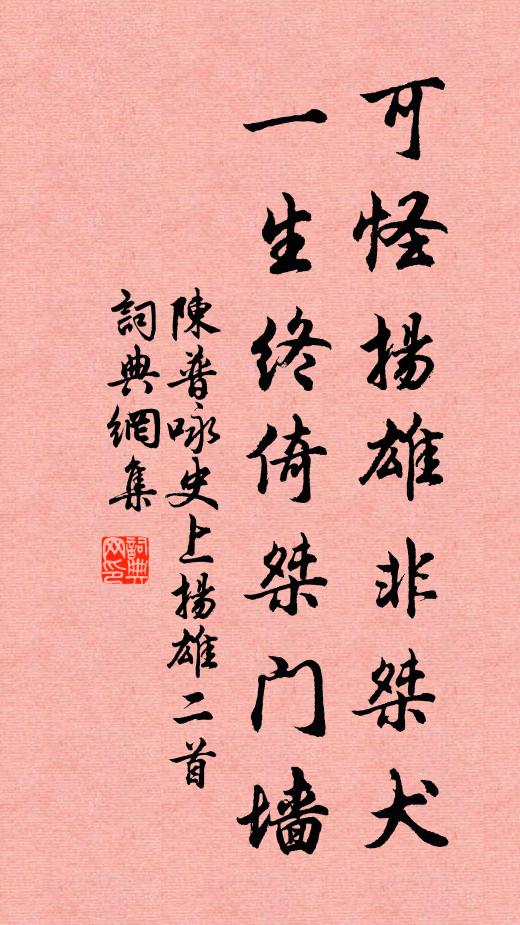 可怪揚雄非桀犬
一生终倚桀门墙
陳普咏史上揚雄二首
詞典網集
詞典网印